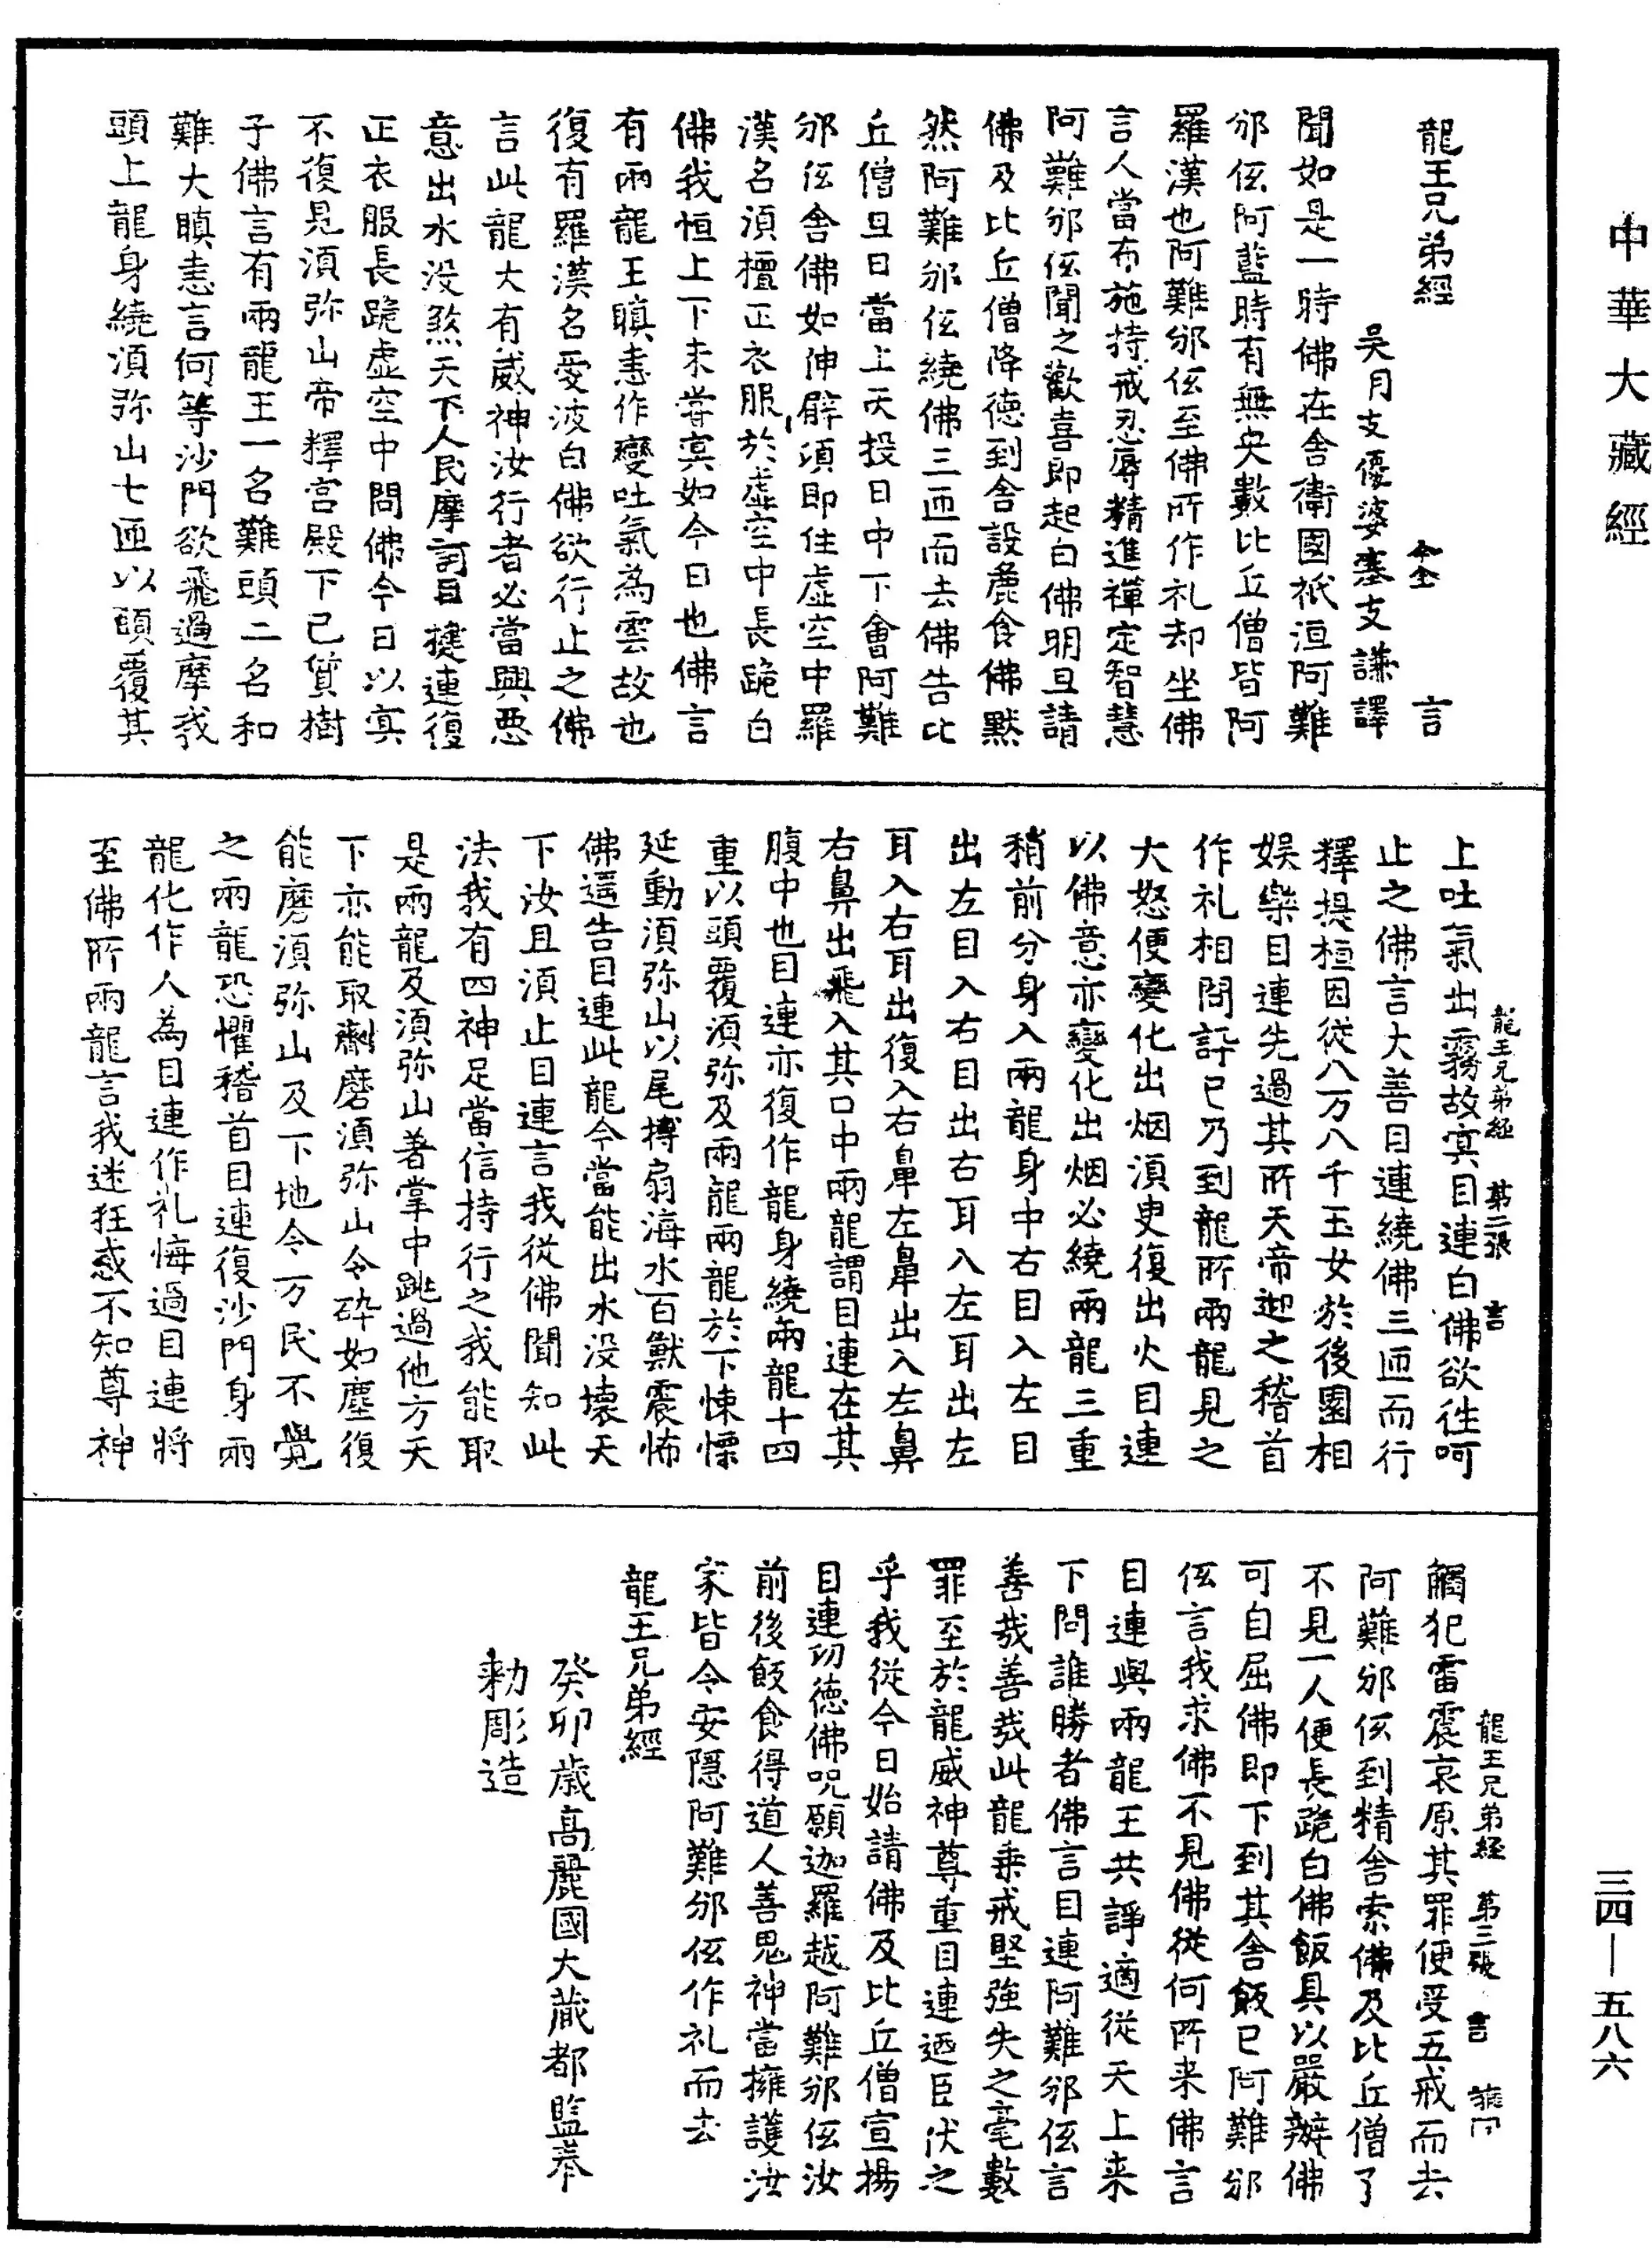 中華大藏經
龍王兄弟經 仐 言
吳月支優婆塞支謙譯
聞如是一時佛在舍衛國祇洹阿難
邠伭阿藍時有無央數比丘僧皆阿
羅漢也阿難邠伭至佛所作礼却坐佛
言人當布施持戒忍辱精進禪定智慧
阿難邠伭聞之歡喜即起白佛明旦請
佛及比丘僧降德到舍設麁食佛默
然阿難邠伭繞佛三匝而去佛告比
丘僧旦日當上天投日中下會阿難
邠伭舍佛如伸臂頃即住虛空中羅
漢名須檀正衣服於虛空中長跪白
佛我恒上下未甞㝠如今日也佛言
有兩龍王瞋恚作變吐氣為雲故也
復有羅漢名愛波白佛欲行止之佛
言此龍大有威神汝行者必當興惡
意出水没煞天下人民摩訶目揵連復
正衣服長跪虛空中問佛今日以㝠
不復見須弥山帝釋宮殿下已質樹
子佛言有兩龍王一名難頭二名和
難大瞋恚言何等沙門欲飛過摩我
頭上龍身繞須弥山七匝以頭覆其
龍王兄弟經 第二張 言
上吐氣出霧故㝠目連白佛欲往呵
止之佛言大善目連繞佛三匝而行
釋提桓因從八万八千玉女於後園相
娛樂目連先過其所天帝迎之稽首
作礼相問訊已乃到龍所兩龍見之
大怒便變化出烟須臾復出火目連
以佛意亦變化出烟必繞兩龍三重
稍前分身入兩龍身中右目入左目
出左目入右目出右耳入左耳出左
耳入右耳出復入右鼻左鼻出入左鼻
右鼻出飛入其口中兩龍謂目連在其
腹中也目連亦復作龍身繞兩龍十四
重以頭覆須弥及兩龍兩龍於下悚慄
延動須弥山以尾搏扇海水百獸震怖
佛遥告目連此龍今當能出水没壞天
下汝且須止目連言我從佛聞知此
法我有四神足當信持行之我能取
是兩龍及須弥山著掌中跳過他方天
下亦能取劘磨須弥山令碎如塵復
能磨須弥山及下地令万民不覺
之兩龍恐懼稽首目連復沙門身兩
龍化作人為目連作礼悔過目連將
至佛所兩龍言我迷狂惑不知尊神
龍王兄弟經 第三張 言
觸犯雷震哀原其罪便受五戒而去
阿難邠伭到精舍索佛及比丘僧了
不見一人便長跪白佛飯具以嚴辦佛
可自屈佛即下到其舍飯已阿難邠
伭言我求佛不見佛從何所来佛言
目連與兩龍王共諍適從天上来
下問誰勝者佛言目連阿難邠伭言
善哉善哉此龍乗戒堅強失之毫數
罪至於龍威神尊重目連迺臣伏之
乎我從今日始請佛及比丘僧宣揚
目連功德佛呪願迦羅越阿難邠伭汝
前後飯食得道人善鬼神當擁護汝
家皆令安隱阿難邠伭作礼而去
龍王兄弟經
癸卯歲高麗國大藏都監奉
勅彫造
三四—五八六